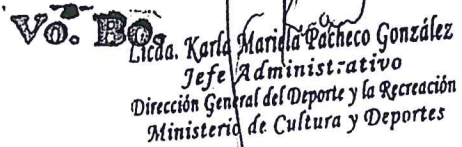 Vo. Bo.
Licda. Karla Mariela Pacheco González
Jefe Administrativo
Dirección General del Deporte y la Recreación
Ministerio de Cultura y Deportes